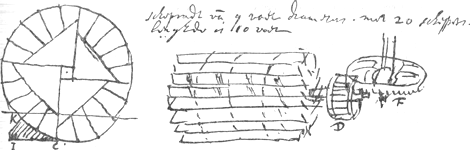 scheprad van 9 roede diameter. met 20 scheppers.
lengte is 10 voet
K
I C
D
F